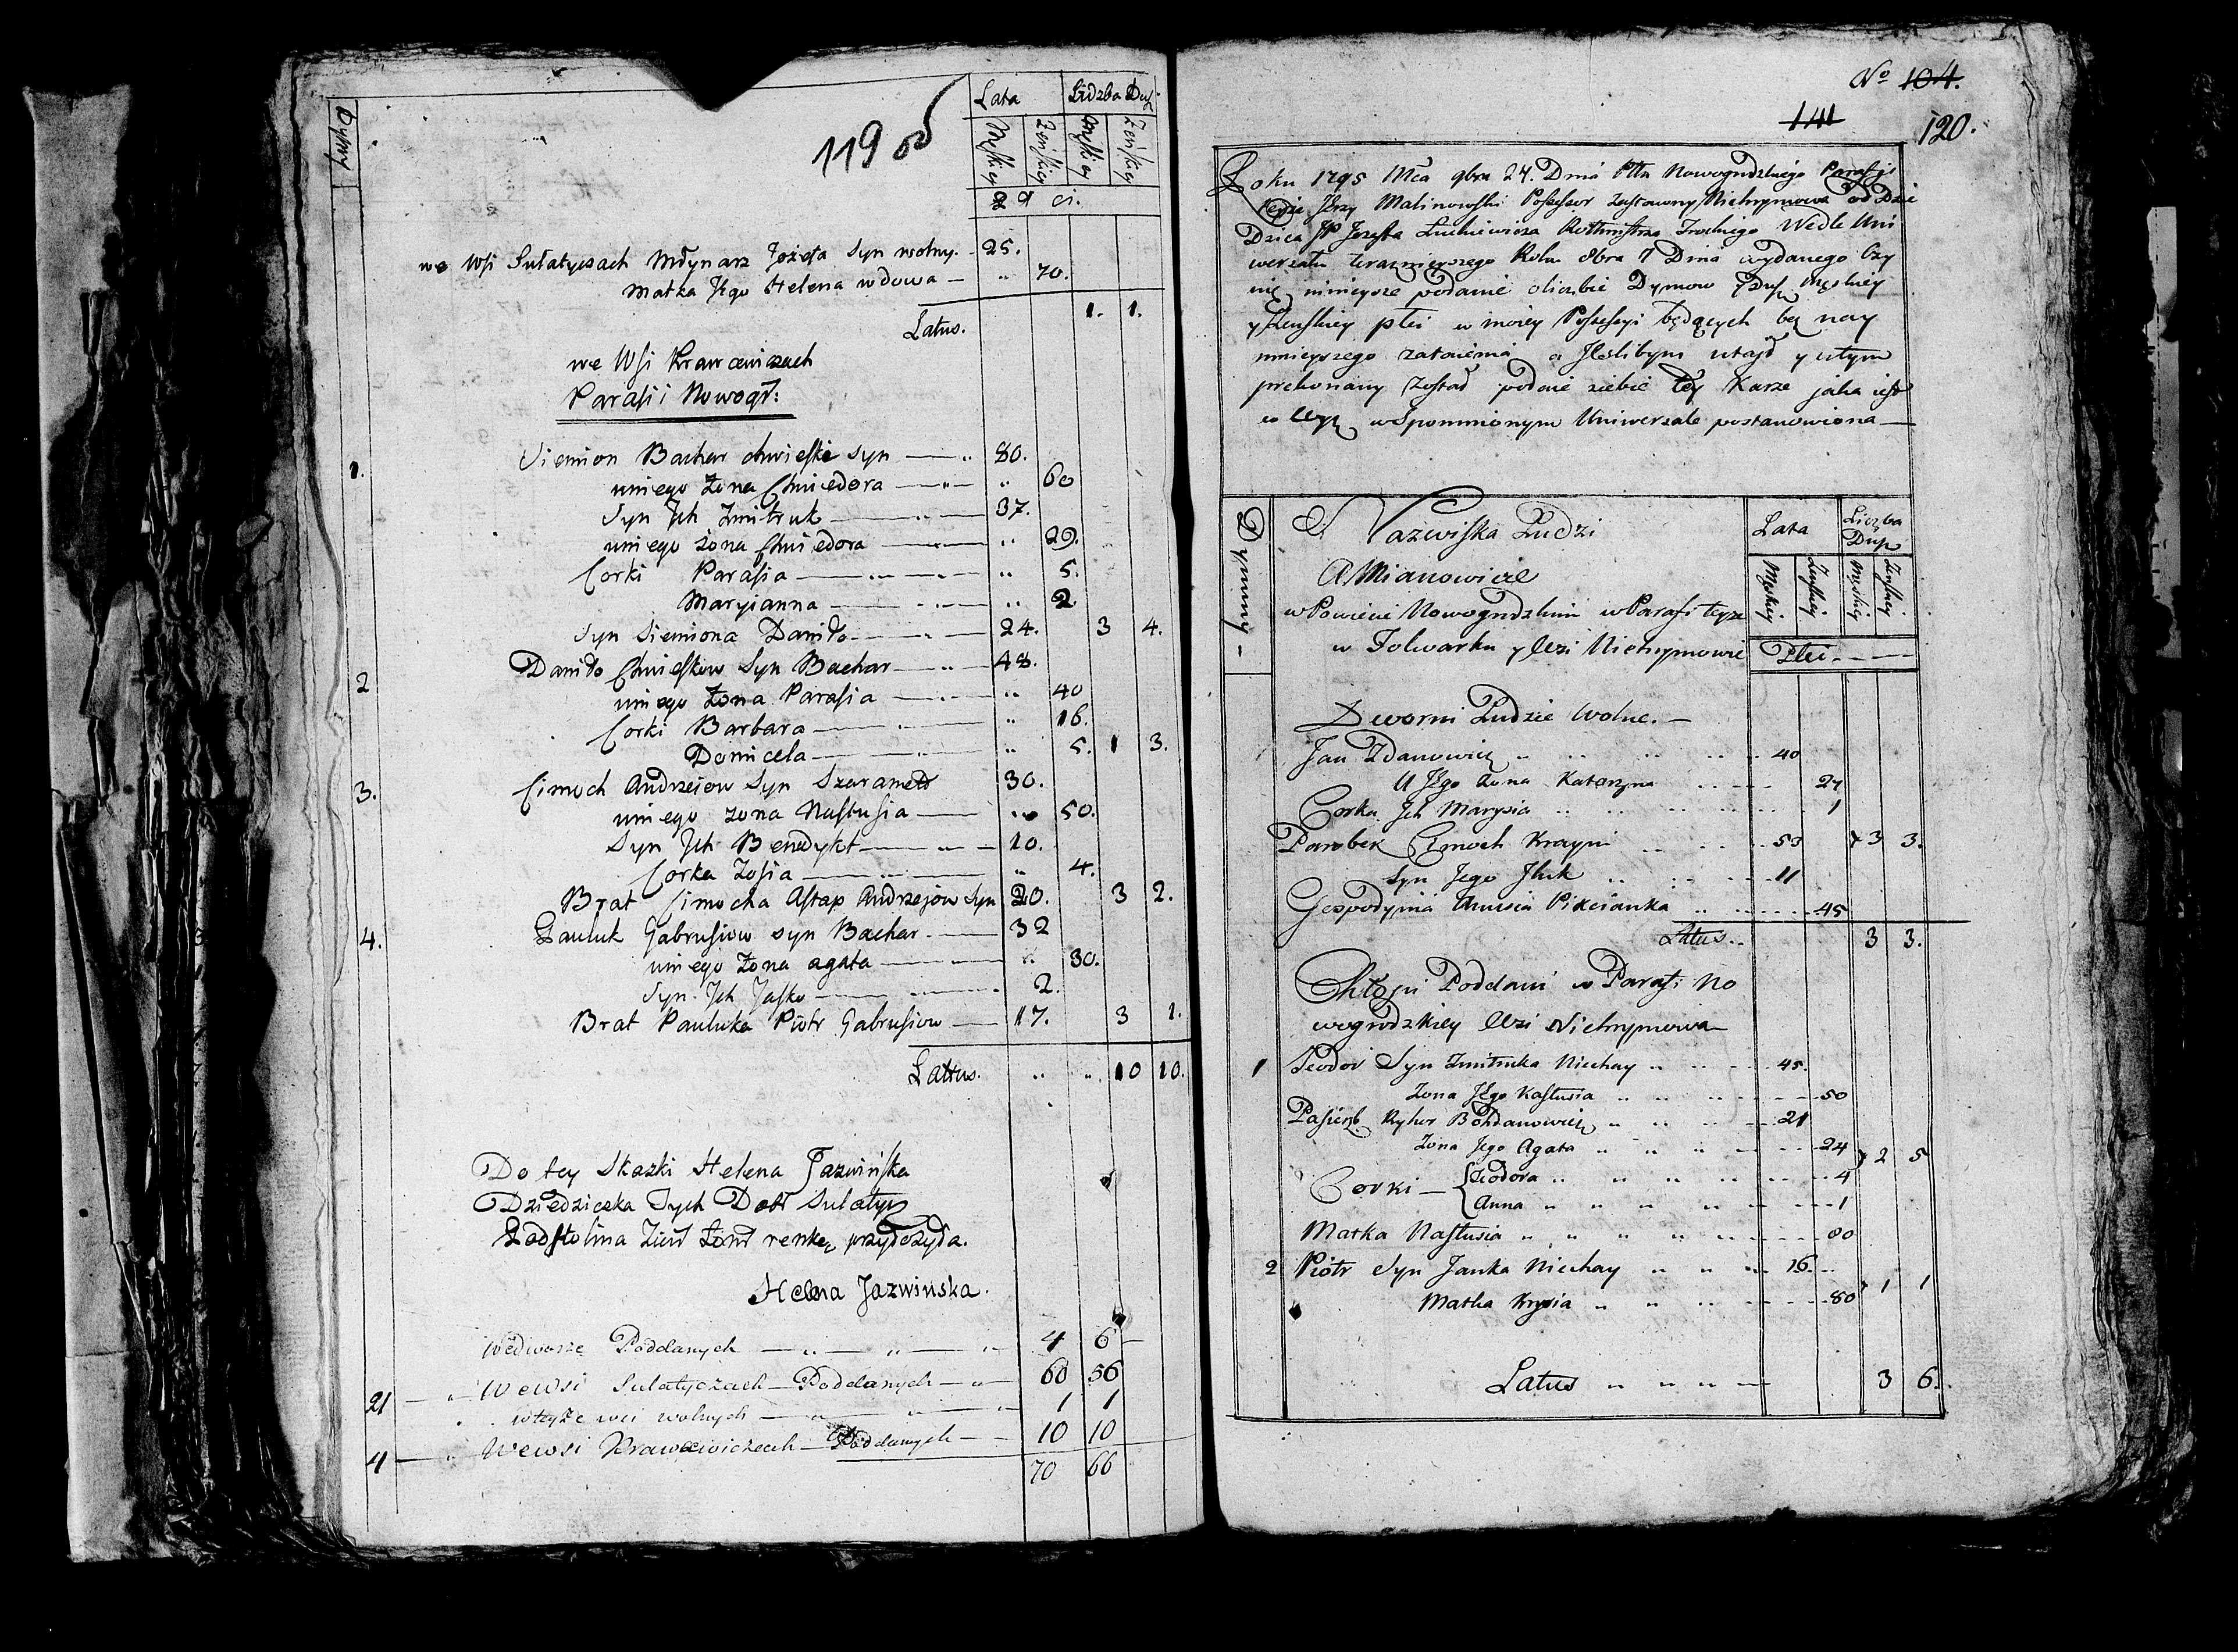 119 od
Dymy
Lata Lidzba Dusz
Męskiey Zeńskiey Męskiey Zeńskiey
Płci.
we Wsi Sulatyczach Młynarz Jozefa Syn wolny. 25.
Matka Jego Helena wdowa — " 70.
Latus. 1. 1.
we Wsi Krawcewiczach
Parafii Nowogr:
1. Siemion Bachar Chwieśki syn — " 80.
uniego Zona Chwiedora — " — " 60
Syn Ich Zmitruk — " — 37.
uniego zona Chwiedora — " 29.
Corki Parasia — " — " — " 5.
Maryianna — " — " 2.
Syn Siemiona Daniło — " — 24. 3 4.
2 Daniło Chwieśkow Syn Bachar — " — 48.
uniego Zona Parasia — " — " 40
Corki Barbara — " — " 16.
Domicela — " — " 5. 1 3.
3. Cimoch Andrzeiow Syn Szaramed 30.
uniego zona Nastusia — " 50.
Syn Ich Benedykt — " — 10.
Corka Zosia — " — " 4.
Brat Cimocha Astap Andrzejow Syn 20. 3 2.
4. Pauluk Gabrusiow syn Bachar. — 32
uniego Zona agata — " 30.
Syn Ich Jaśko — " — 2.
Brat Pauluka Piotr Gabrusiow — 17. 3 1.
Lattus. " " 10 10.
Do tey Skazki Helena Jazwińska
Dziedziczka Tych Dobr Sulatycz
renkę przyłożyła.
Helena Jazwinska.
Wedworze Poddanych — " — " — " 4 6 —
21 — " — Wewsi Sulatyczach — Poddanych — " — 60 56
wteyże wsi wolnych — " — " — " 1 1
4 — " Wewsi Krawcewiczach — Poddanych — 10 10
70 66
No 104.
141
120.
Roku 1795 Mca 9bra 24. Dnia Ptu Nowogrodzkiego Parafji
teyże Jerzy Malinowski Possessor zastawny Niehnymowa od Dzie
Dzica JP Jozefa Rotmistrza Wedle Uni
wersału teraznieyszego Roku 8bra 7 Dnia wydanego Czy
nię ninieysze podanie oliczbie Dymow y Dusz męskiey
y Zenskiey płci w moiey Possessyi będących bez nay
mnieyszego zataienia a Jeslibym utaił y wtym
prekonany został podaie siebie tey Karze jaka iest
w wyż wspomnionym Uniwersale postanowiona —
Dymmy —
Nazwiska Ludzi
A Mianowicie
w Powiecie Nowogrodzkim w Parafi teyze
w Folwarku y Wsi Niehnymowie
Lata Liczba Dusz
Męskiey Zenskiey Męskiey Zenskiey
Płci — — —
Dworni Ludzie Wolne. —
Jan Zdanowicz " " " " 40
U Jego Zona Katarzyna — — 27
Corka Ich Marysia " " " 1
Parobek Cimoch Krayni " " 53 3 3.
Syn Jego Iluk " " " 11
Gospodynia Anusia Pikcianka " " 45
Latus.. 3 3.
Chłopi Poddani w Parafi: No
wogrodzkiey Wsi Niehnymowa
1 Teodor Syn Zmitruka Niechay " " 45.
Zona Jego Kastusia " " " 50
Pasierb Ryhor Bohdanowicz " " " 21
Zona Jego Agata " " " — 24 2 5
Corki — { Teodora " " " " " — 4
Anna " " " " " — 1
Matka Nastusia " " " " " — 80
2 Piotr Syn Janka Niechay " " " 16. —
Matka Krysia " " " — 80 1 1
Latus " " " " — 3 6.